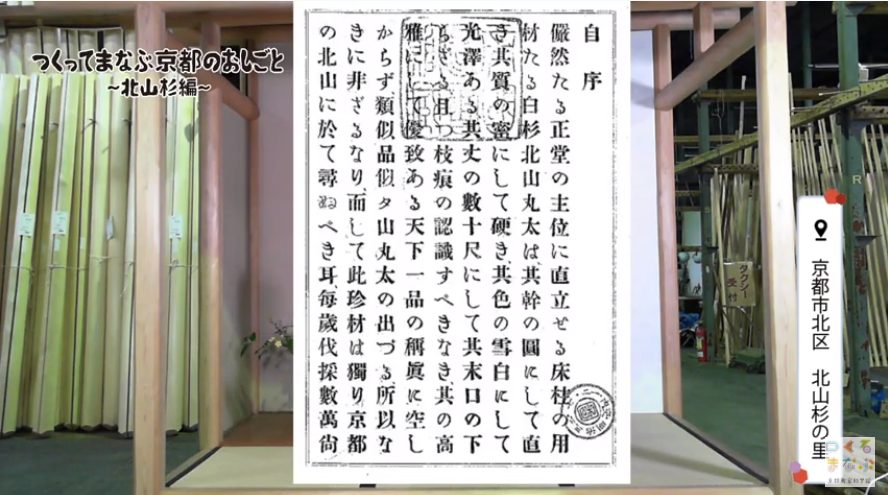 つくってまなぶ京都のおしごと
~北山杉編~
自序
儼然たる正堂の主位に直立せる床柱の用
材たる白杉北山丸太は其幹の圓にして直
き其質の密にして硬き其色の雪白にして
光澤ある其丈の數十尺にして其末口の下
らざる且つ枝痕の認識すべきなき其の高
雅にして優致ある天下一品の稱眞に空し
からず類似品似タ山丸太の出づる所以な
きに非ざるなり而して此珍材は獨り京都
の北山に於て尋ぬべき耳毎歲伐採數萬尙
タクシー
受付
R
京都市北区 北山杉の里
つくる
まなぶ